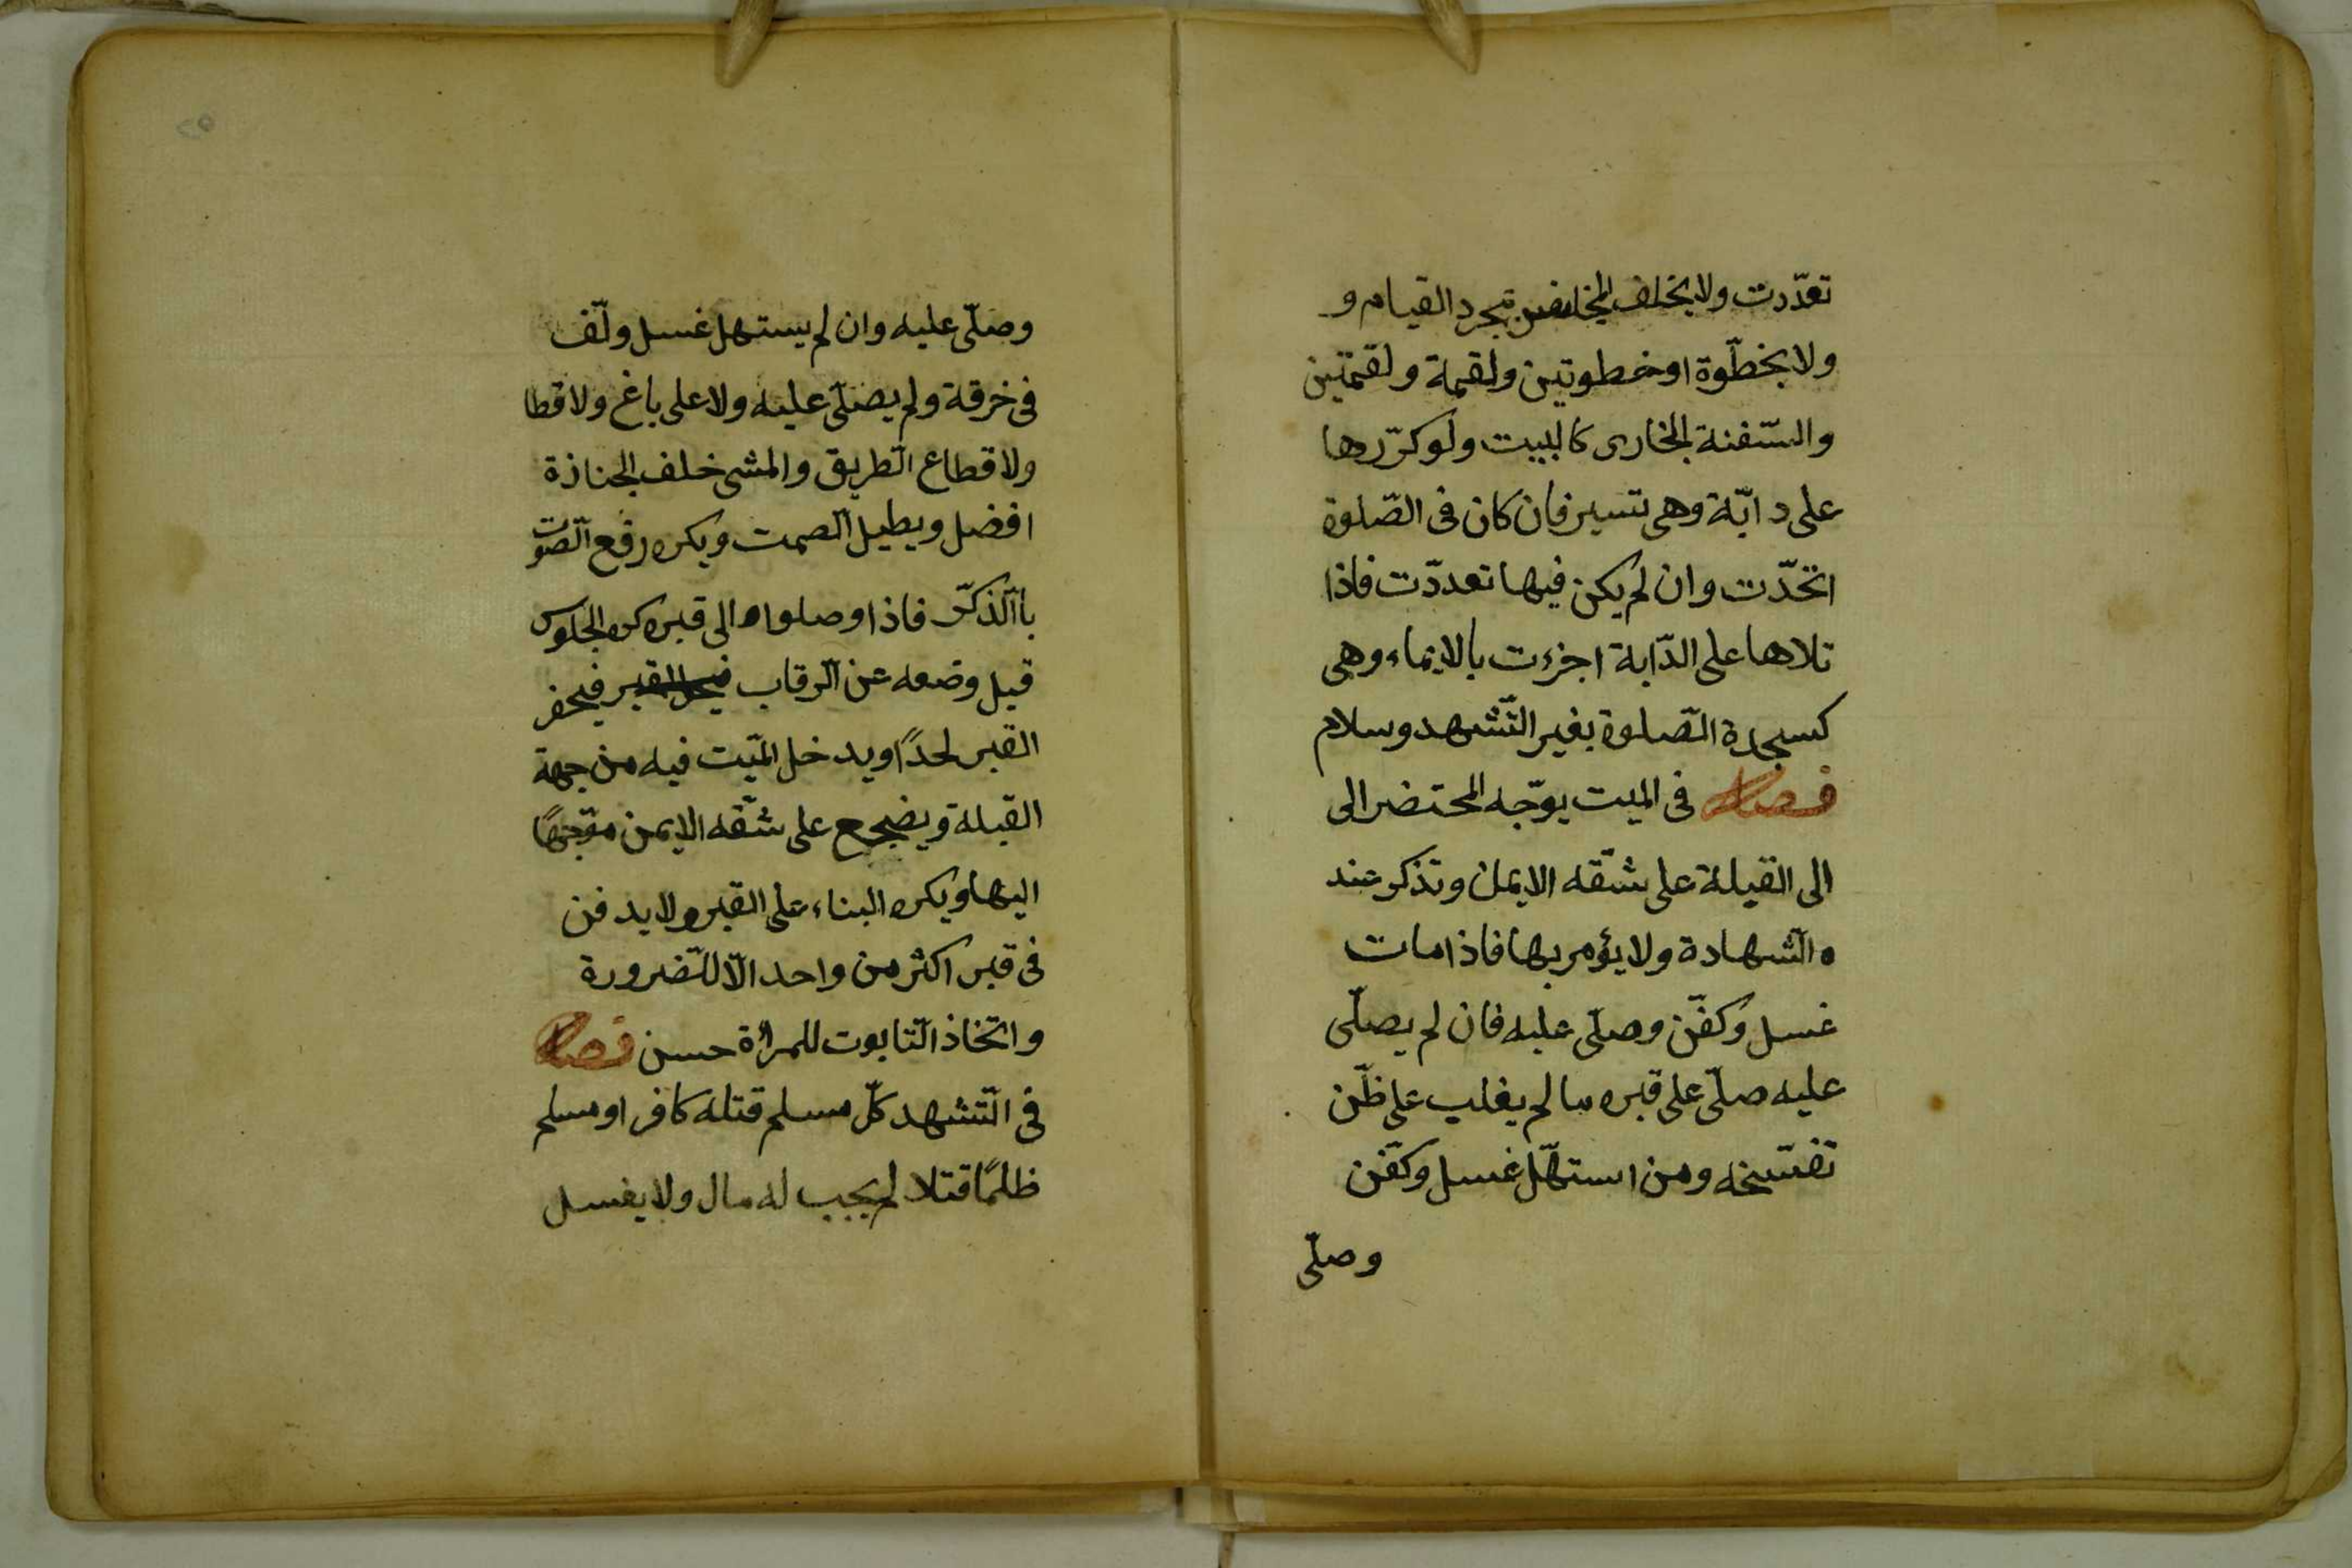 تعدّدت ولا يختلف المجلس بمجرد القيام و
ولا بخطّوة او خطوتين ولقمة ولقمتين
والسّفنة الجارى كالبيت ولو كرّرها
على دابّة وهى تسير فان كان فى الصّلوة
اتحّدت وان لم يكن فيها تعددّت فاذا
تلاها على الدّابة اجزءت بالايماء وهى
كسجدة الصّلوة بغير التّشهد وسلام
فصل فى الميت يوّجه المحتضر الى
الى القبلة على شقّه الايمن وتذكر عند
ه الشّهادة ولا يؤمر بها فاذا مات
غسل وكفّن وصلّى عليه فان لم يصلّى
عليه صلّى على قبره ما لم يغلب على ظّن
تفسّخه ومن استهلّ غسل وكفّن
وصلّى
٢٥
وصلّى عليه وان لم يستهل غسل ولّف
فى خرقة ولم يصلّى عليه ولا على باغ ولا قطا
ولا قطاع الطّريق والمشى خلف الجنازة
افضل ويطيل الصّمت ويكره رفع الصّوت
باالذّكر فاذا وصلواه الى قبره كره الجلوس
قبل وضعه عن الرّقاب فيحفر
القبر لحدًا ويدخل الميّت فيه من جهة
القبلة ويضجع على شقّه الايمن متوجّهًا
اليها ويكره البناء على القبر ولا يدفن
فى قبر اكثر من واحد الّا للضّرورة
واتخاذ التّابوت للمرأة حسن فصل
فى التّشهد كلّ مسلم قتله كافر او مسلم
ظلمًا قتلا لم يجب له مال ولا يغسل